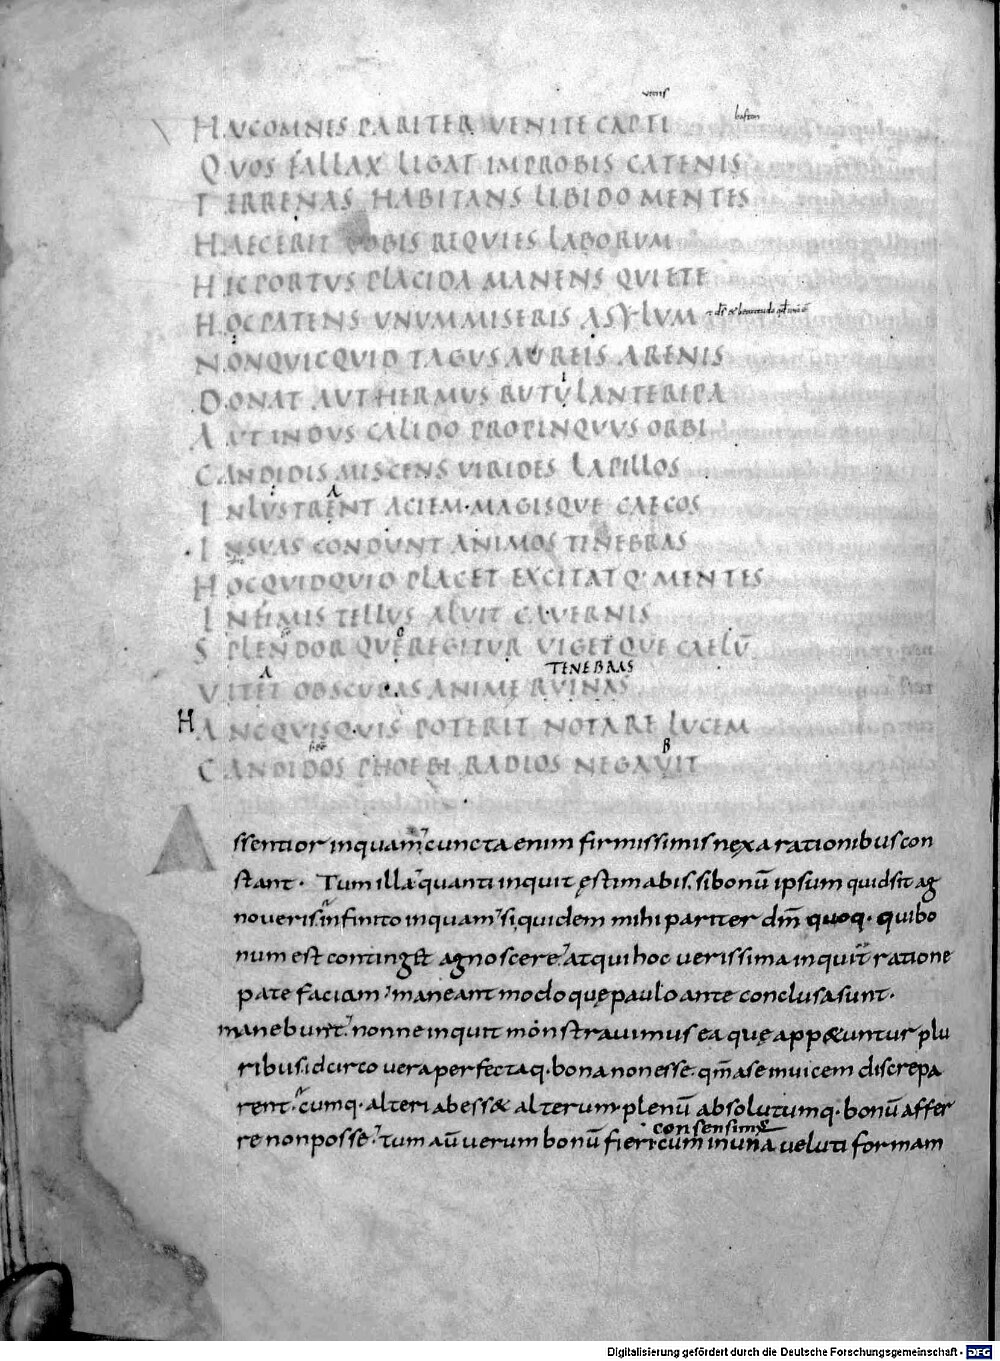 HUC OMNES PARITER VENITE CAPTI
QUOS FALLAX LIGAT IMPROBIS CATENIS
TERRENAS HABITANS LIBIDO MENTES
HAEC ERIT VOBIS REQUIES LABORUM
HIC PORTUS PLACIDA MANENS QUIETE
HOC PATENS UNUM MISERIS ASYLUM
NON QUICQUID TAGUS AUREIS ARENIS
DONAT AUT HERMUS RUTULANTE RIPA
AUT INDUS CALIDO PROPINQUUS ORBI
CANDIDIS MISCENS VIRIDES LAPILLOS
A
INLUSTRENT ACIEM MAGISQUE CAECOS
IN SUAS CONDUNT ANIMOS TENEBRAS
HOC QUIDQUID PLACET EXCITATQ· MENTES
INFIMIS TELLUS ALUIT CAVERNIS
SPLENDOR QUE REGITUR VIGETQUE CAELŪ
A TENEBRAS
VITET OBSCURAS ANIME RUINAS
HANC QUISQUIS POTERIT NOTARE LUCEM
B
CANDIDOS PHOEBI RADIOS NEGAVIT
Assentior inquam cuncta enim firmissimis nexa rationibus con
stant· Tum illa quanti inquit ęstimabis. si bonū ipsum quid sit ag
noveris. infinito inquam si quidem mihi pariter dm̄ quoq· qui bo
num est continget agnoscere atqui hoc verissima inquit ratione
patefaciam maneant modo quę paulo ante conclusa sunt·
manebunt. nonne inquit monstravimus ea quę app&untur plu
ribus. idcirco vera perfectaq· bona non esse. qm̄ a se invicem discrepa
rent· cumq· alteri abess& alterum plenū absolutumq· bonū affer
re non posse. tum aū verum bonū fieri cum in una veluti formam